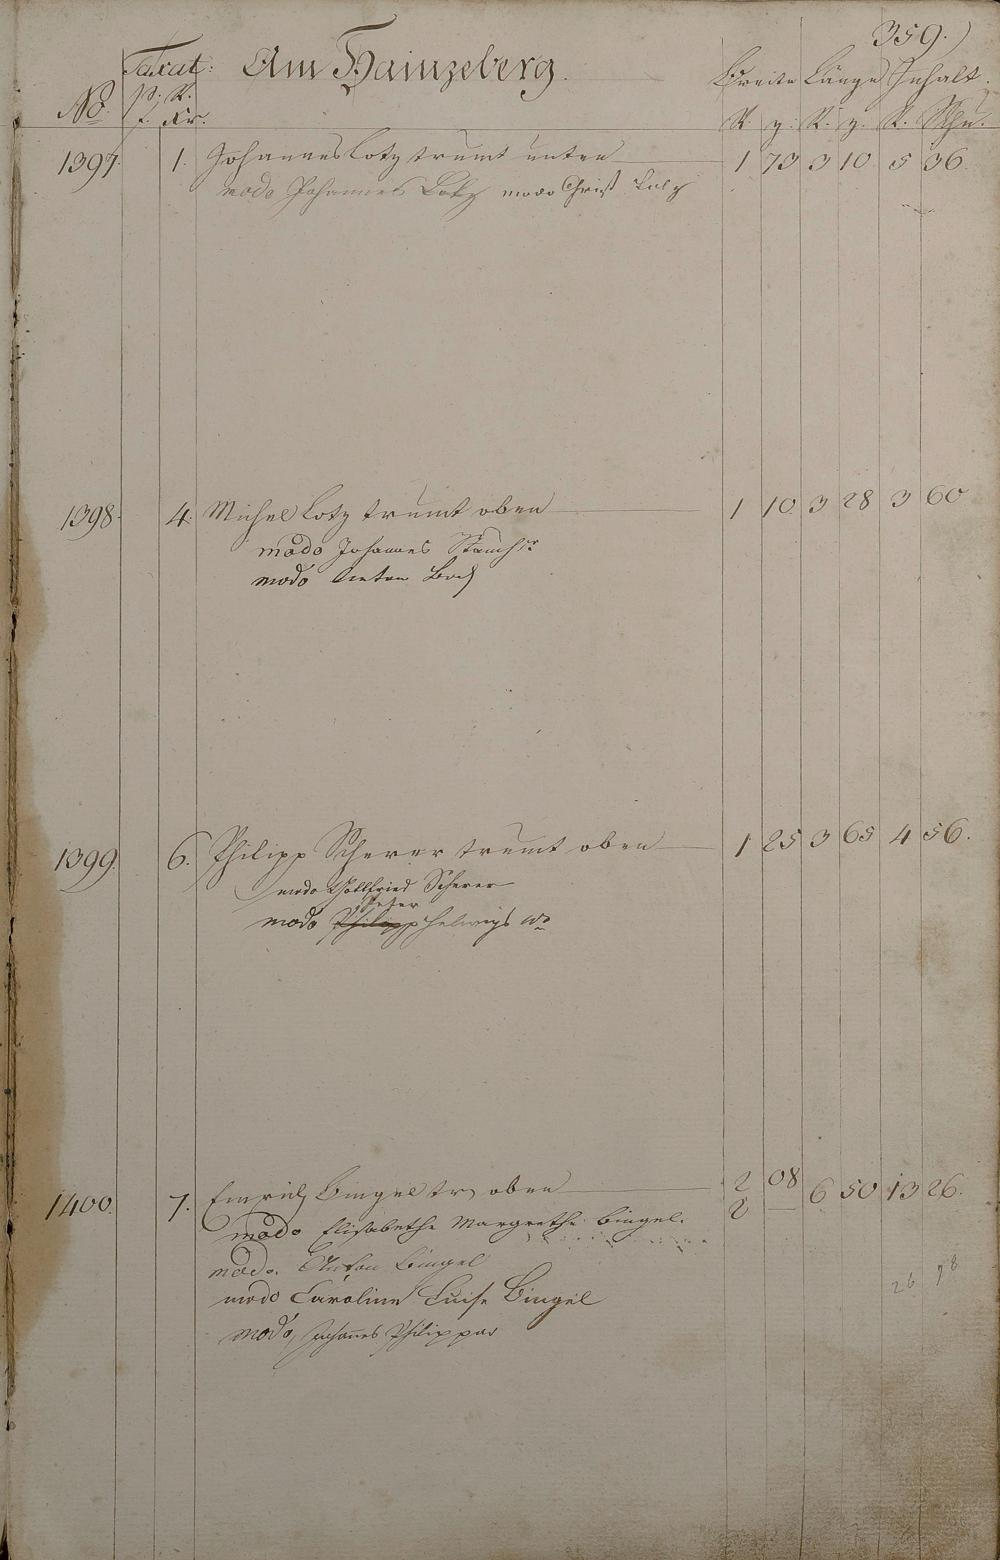 359.)
Taxat: Am Hainzeberg. Breite Länge Inhalt.
No. p. R. R. y. R. y. R. Schu.
f. Kr.
1397 1. Johannes Lotz trumt unten 1 73 3 10 5 36
modo Johannes Lotz modo Christ
1398. 4. Michel Lotz trumt oben 1 10 3 28 3 60
modo Johannes
modo Anton
1399. 6. Philipp Scherer trumt oben 1 25 3 65 4 56.
modo Gottfried Scherer
Peter
modo Philipp Helwigs
1400. 7. Emrich Bingel tr oben 2 08 6 50 13 26.
2
modo Elisabetha Margretha Bingel.
modo. Anton Bingel
26 78
modo Caroline Luise Bingel
modo, Johannes Philippus